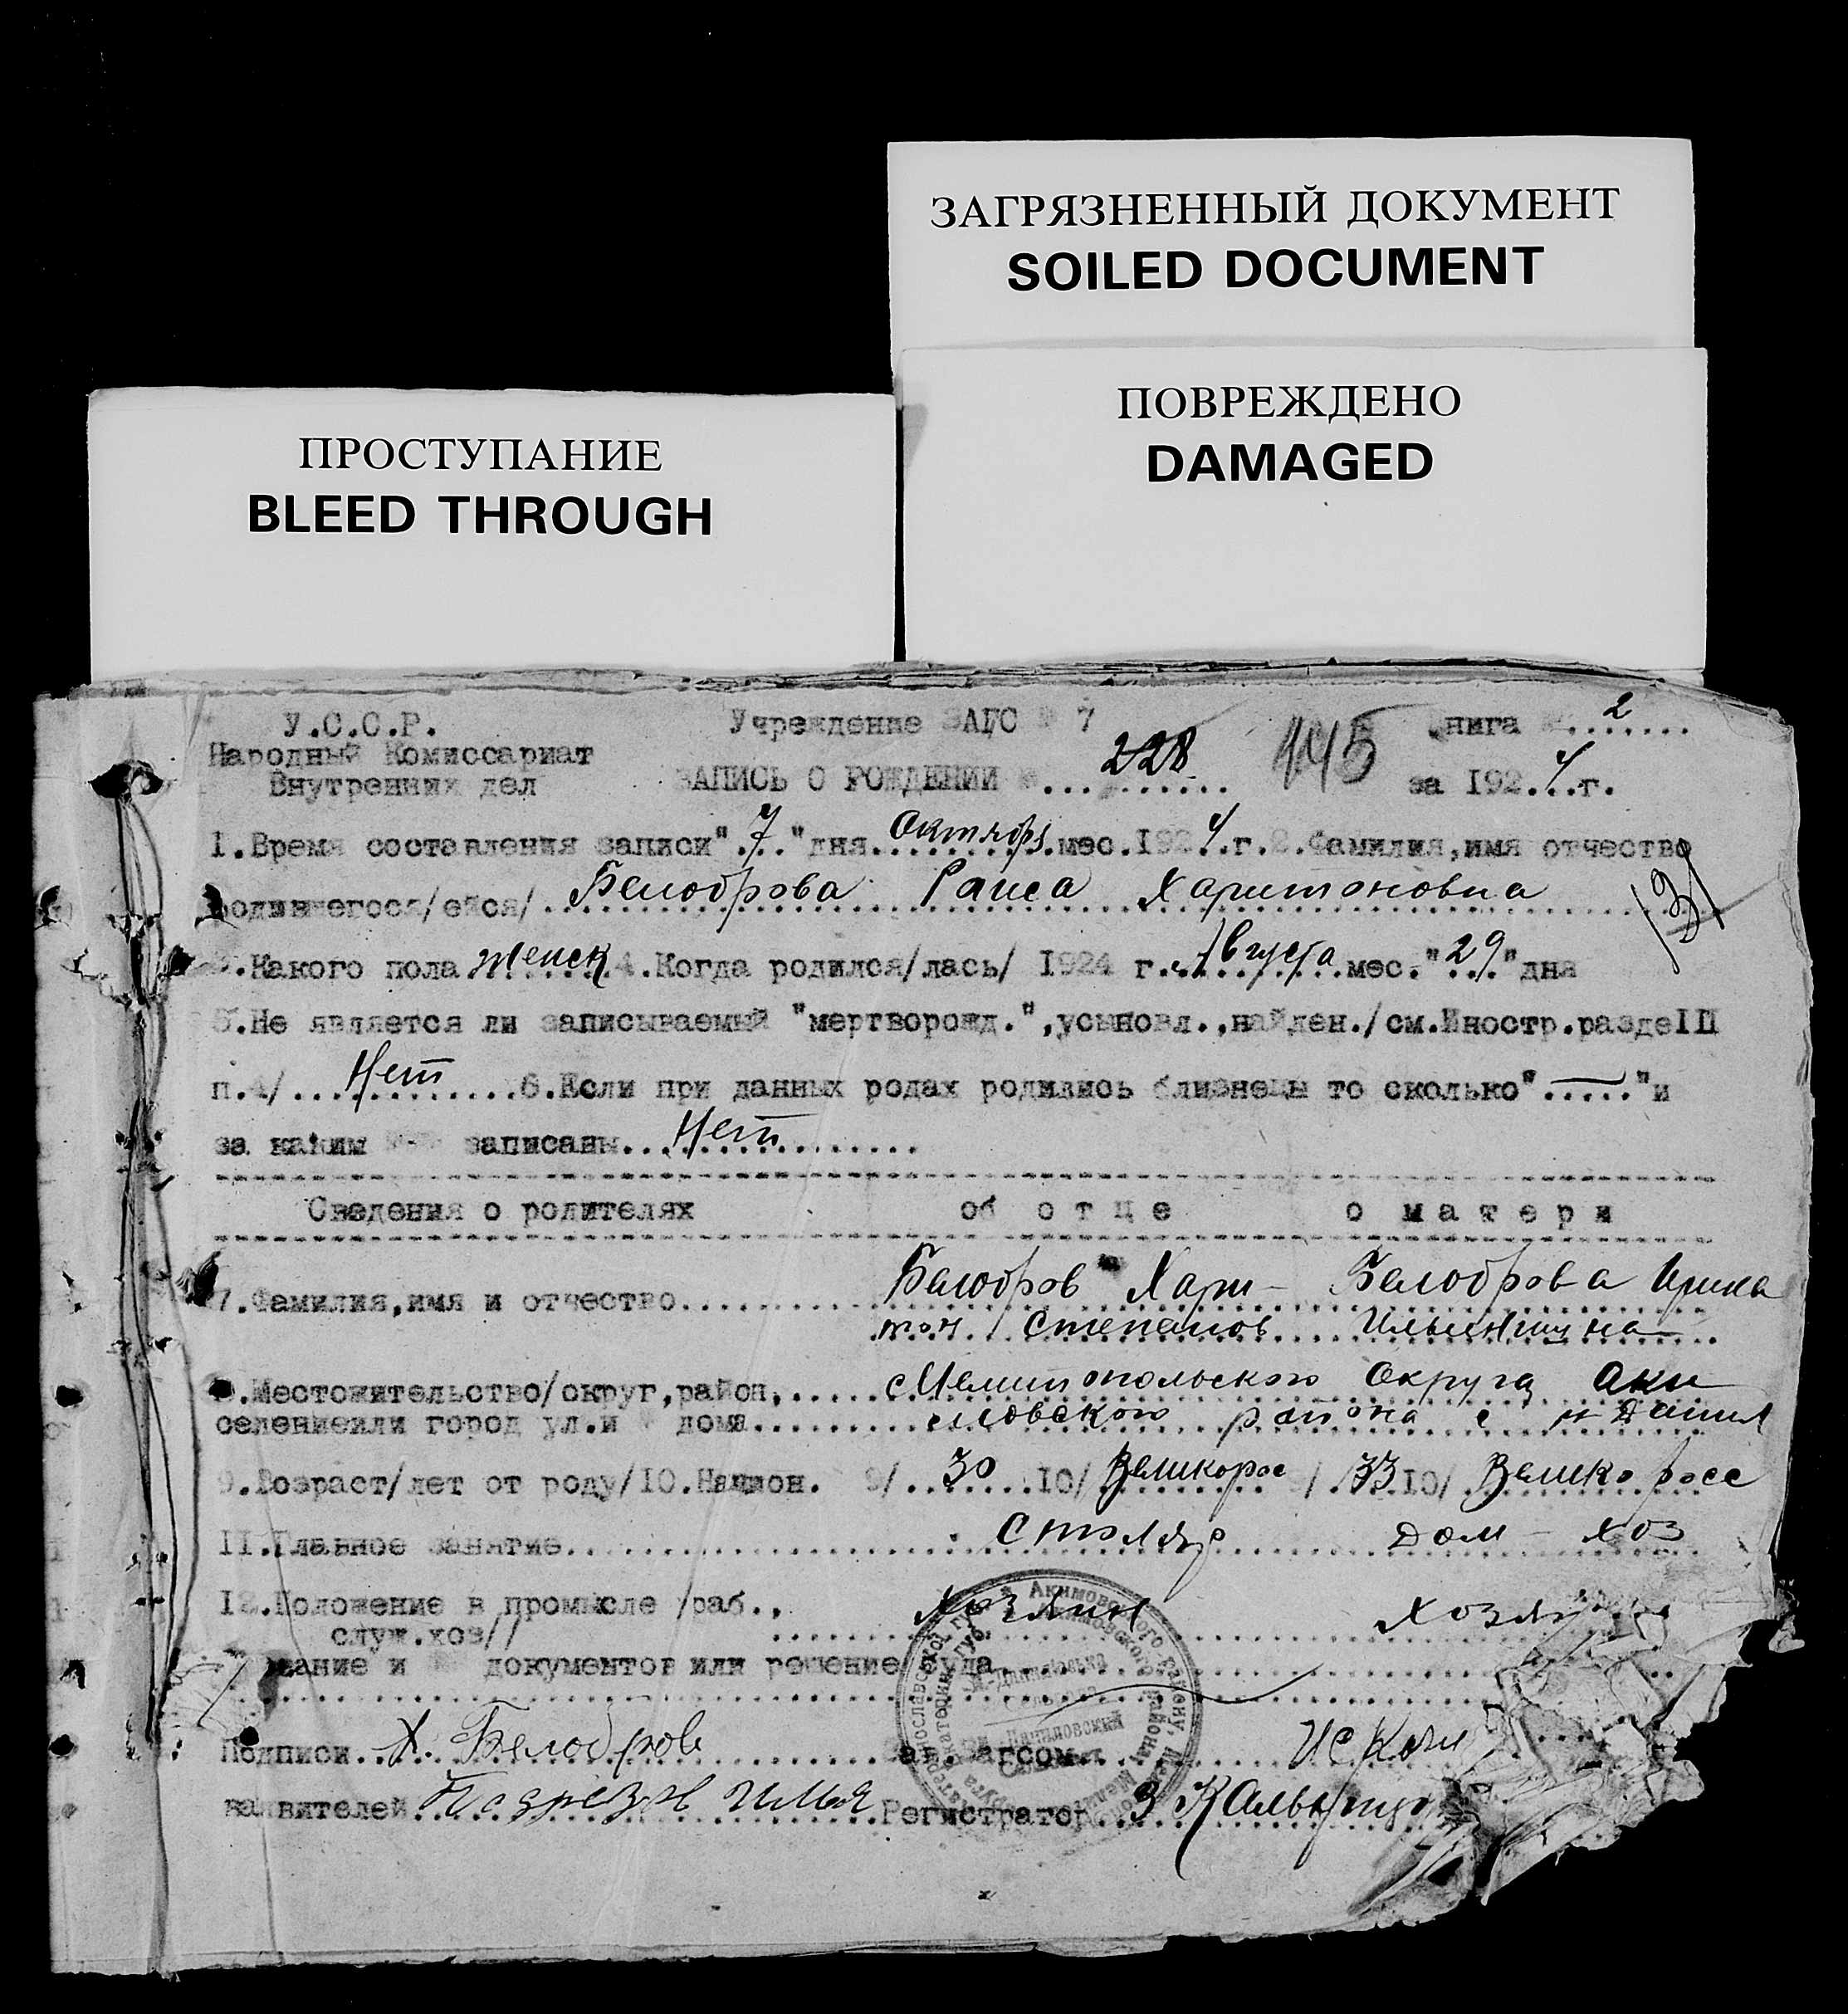 ЗАГРЯЗНЕННЫЙ ДОКУМЕНТ
SOILED DOCUMENT
ПОВРЕЖДЕНО
DAMAGED
ПРОСТУПАНИЕ
BLEED THROUGH
У.С.С.Р. Учреждение ЗАГС № 7 книга 2
Народный Комиссариат
Внутренних дел ЗАПИСЬ О РОЖДЕНИИ № 228 145 за 1924 г.
1.Время составления записи "7" дня Октября мес.1924 г. 2.Фамилия,имя отчество
родившегося/ейся/ Белоброва Раиса Харитоновна 131
3.Какого пола женск 4.Когда родился/лась/ 1924 г. Августа мес."29"дня
5.Не является ли записываемый "мертворожд.",усыновл.,найден./см.Иностр.раздеIII
п.4/ Нет 6.Если при данных родах родились близнецы то сколько"....."и
за каким записаны Нет
Сведения о родителях об отце о матери
7.Фамилия,имя и отчество Белобров Хари- Белоброва Ирина
тон Степанов Ильинишна
8.Местожительство/округ,район, Мелитопольского Округа Аки
селениеили город ул.и № дома мовского района с Н Данил
9.Возраст/лет от роду/10.Национ. 9/ 30 10/ Великорос 9/ 33 10/ Великоросс
11.Главное занятие Столяр Дом - хоз
12.Положение в промысле /раб., Хозяин Хозяй
служ.хоз//
звание и № документов или решение суда
Подписи Х. Белобров Зав. Загсом
заявителей Илья Регистратор